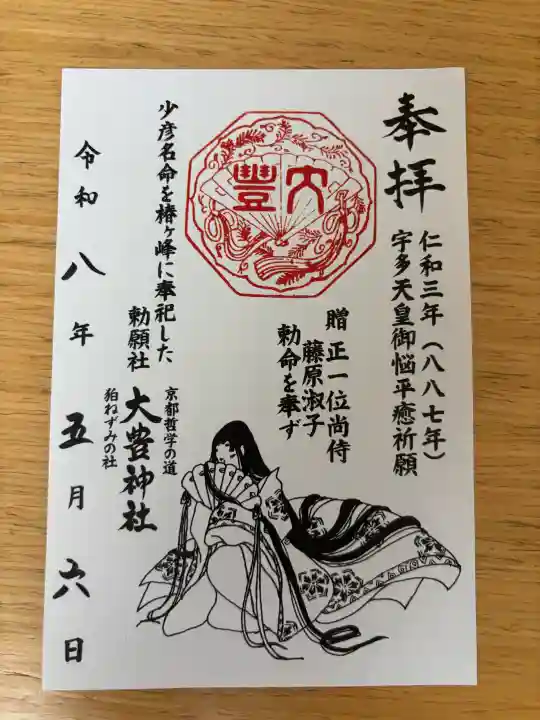 奉拝
仁和三年（八八七年）
宇多天皇御悩平癒祈願
大豐
贈 正一位尚侍
藤原淑子
勅命を奉ず
少彦名命を椿ヶ峰に奉祀した
勅願社
京都哲学の道
大豊神社
狛ねずみの社
令和八年五月六日